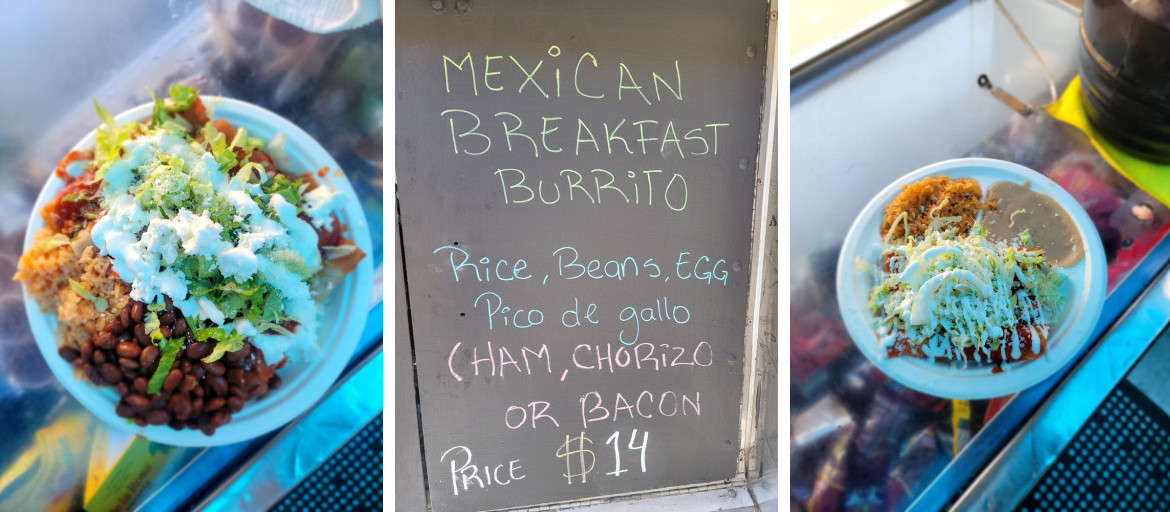 MEXiCAN
BREAKFAST
BURRiTO
Rice, Beans, EGG
Pico de gallo
(HAM, CHORiZO
OR BACON
PRiCE $14